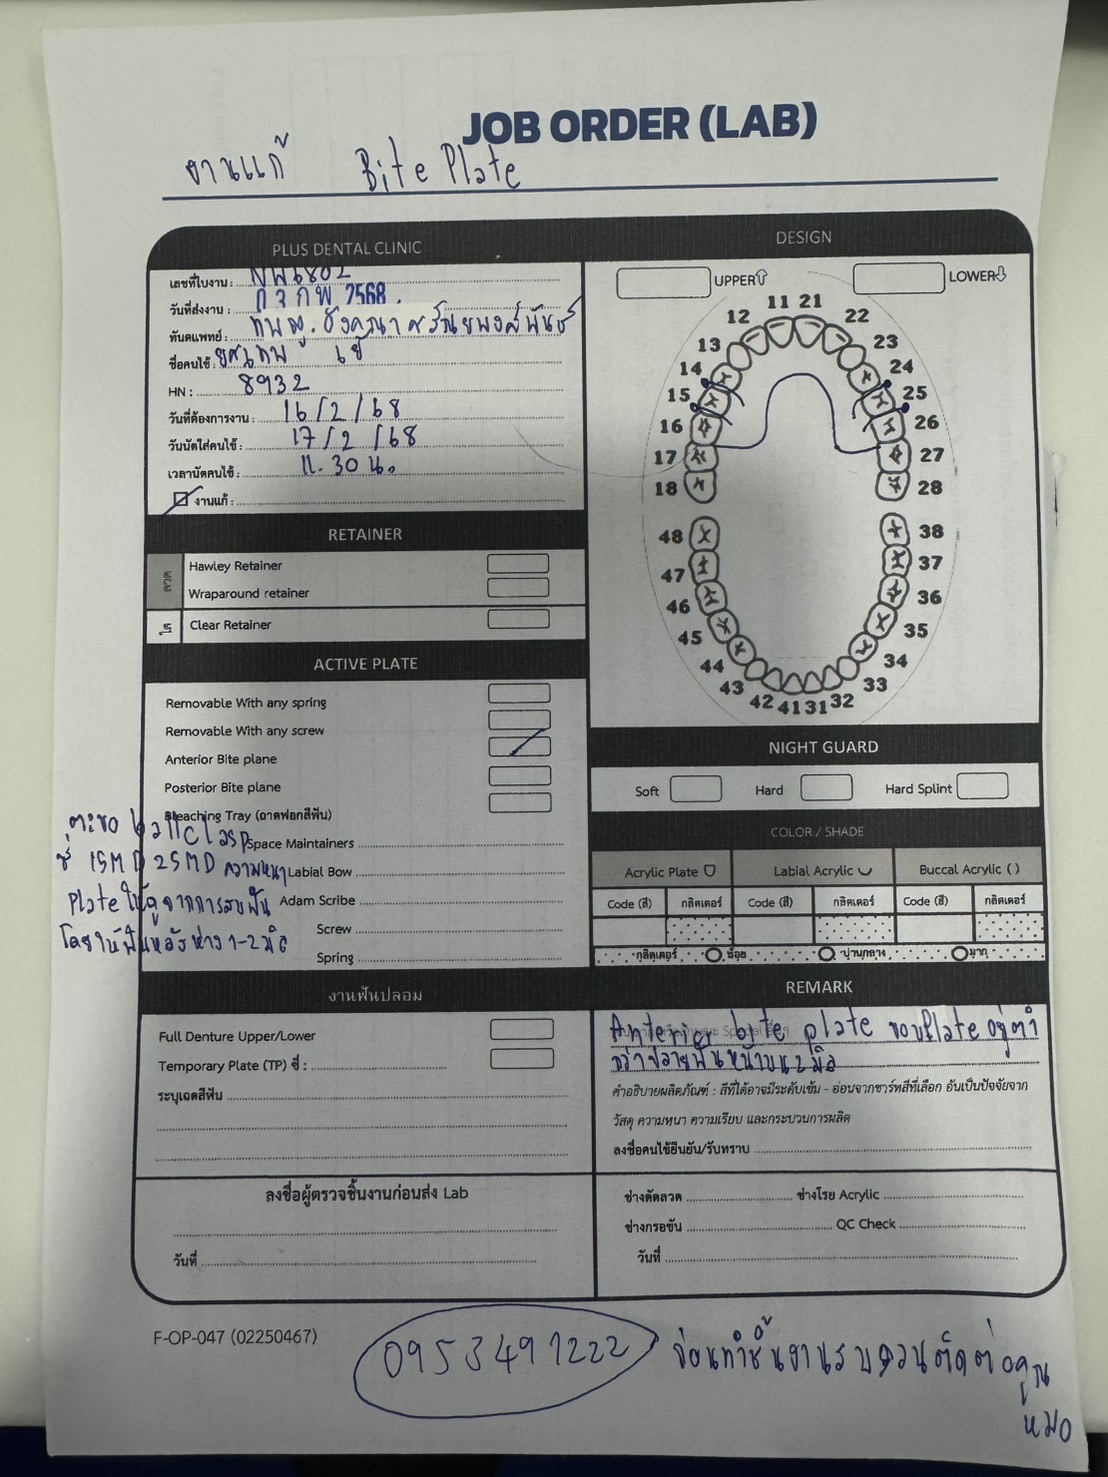 JOB ORDER (LAB)
งานแก้ Bite Plate
PLUS DENTAL CLINIC
เลขที่ใบงาน : NW6802
วันที่ส่งงาน : กพ 2568
ทันตแพทย์ : ทพญ.
ชื่อคนไข้ :
HN : 8932
วันที่ต้องการงาน : 16/2/68
วันนัดใส่คนไข้ : 17/2/68
เวลานัดคนไข้ : 11.30 น.
งานแก้ :
RETAINER
ลวด
Hawley Retainer
Wraparound retainer
ใส
Clear Retainer
ACTIVE PLATE
Removable With any spring
Removable With any screw
Anterior Bite plane
Posterior Bite plane
Bleaching Tray (ถาดฟอกสีฟัน)
Space Maintainers
Labial Bow
Adam Scribe
Screw
Spring
ตะขอ ballclasp
ซี่ 15MD 25MD ความหนา
Plate ให้ดูจากการสบฟัน
โดยให้ฟันหลังห่าง 1-2 มิล
งานฟันปลอม
Full Denture Upper/Lower
Temporary Plate (TP) ซี่ :
ระบุเฉดสีฟัน
ลงชื่อผู้ตรวจชิ้นงานก่อนส่ง Lab
วันที่
DESIGN
UPPER
LOWER
11 21
12 22
13 23
14 24
15 25
16 26
17 27
18 28
48 38
47 37
46 36
45 35
44 34
43 33
42 41 31 32
NIGHT GUARD
Soft Hard Hard Splint
COLOR / SHADE
Acrylic Plate Labial Acrylic Buccal Acrylic ( )
Code (สี) กลิตเตอร์ Code (สี) กลิตเตอร์ Code (สี) กลิตเตอร์
กลิตเตอร์ น้อย ปานกลาง มาก
REMARK
Anterior bite plate ขอบplate อยู่ต่ำ
กว่าปลายฟันหน้าบน 2 มิล
คำอธิบายผลิตภัณฑ์ : สีที่ได้อาจมีระดับเข้ม - อ่อนจากชาร์ทสีที่เลือก อันเป็นปัจจัยจาก
วัสดุ ความหนา ความเรียบ และกระบวนการผลิต
ลงชื่อคนไข้ยืนยัน/รับทราบ
ช่างดัดลวด ช่างโรย Acrylic
ช่างกรอขัน QC Check
วันที่
F-OP-047 (02250467)
0953497222 ก่อนทำชิ้นงานรบกวนติดต่อคุณ
หมอ